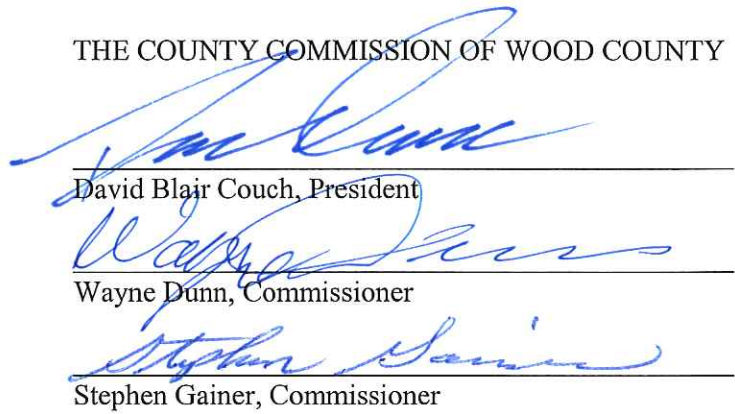 THE COUNTY COMMISSION OF WOOD COUNTY
David Blair Couch, President
Wayne
Wayne Dunn, Commissioner
Stephen Gainer
Stephen Gainer, Commissioner